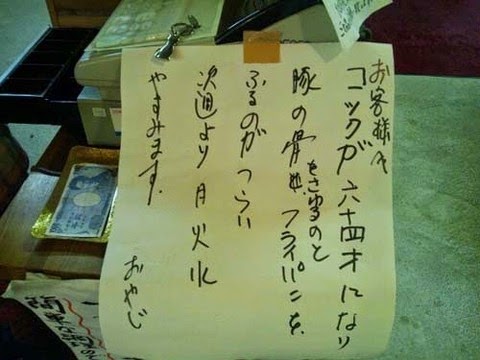 お客様え
コックが六十四才になり
豚の骨
をさばるのと
フライパンを
ふるのがつらい
次週より月火水
やすみます。
おやじ